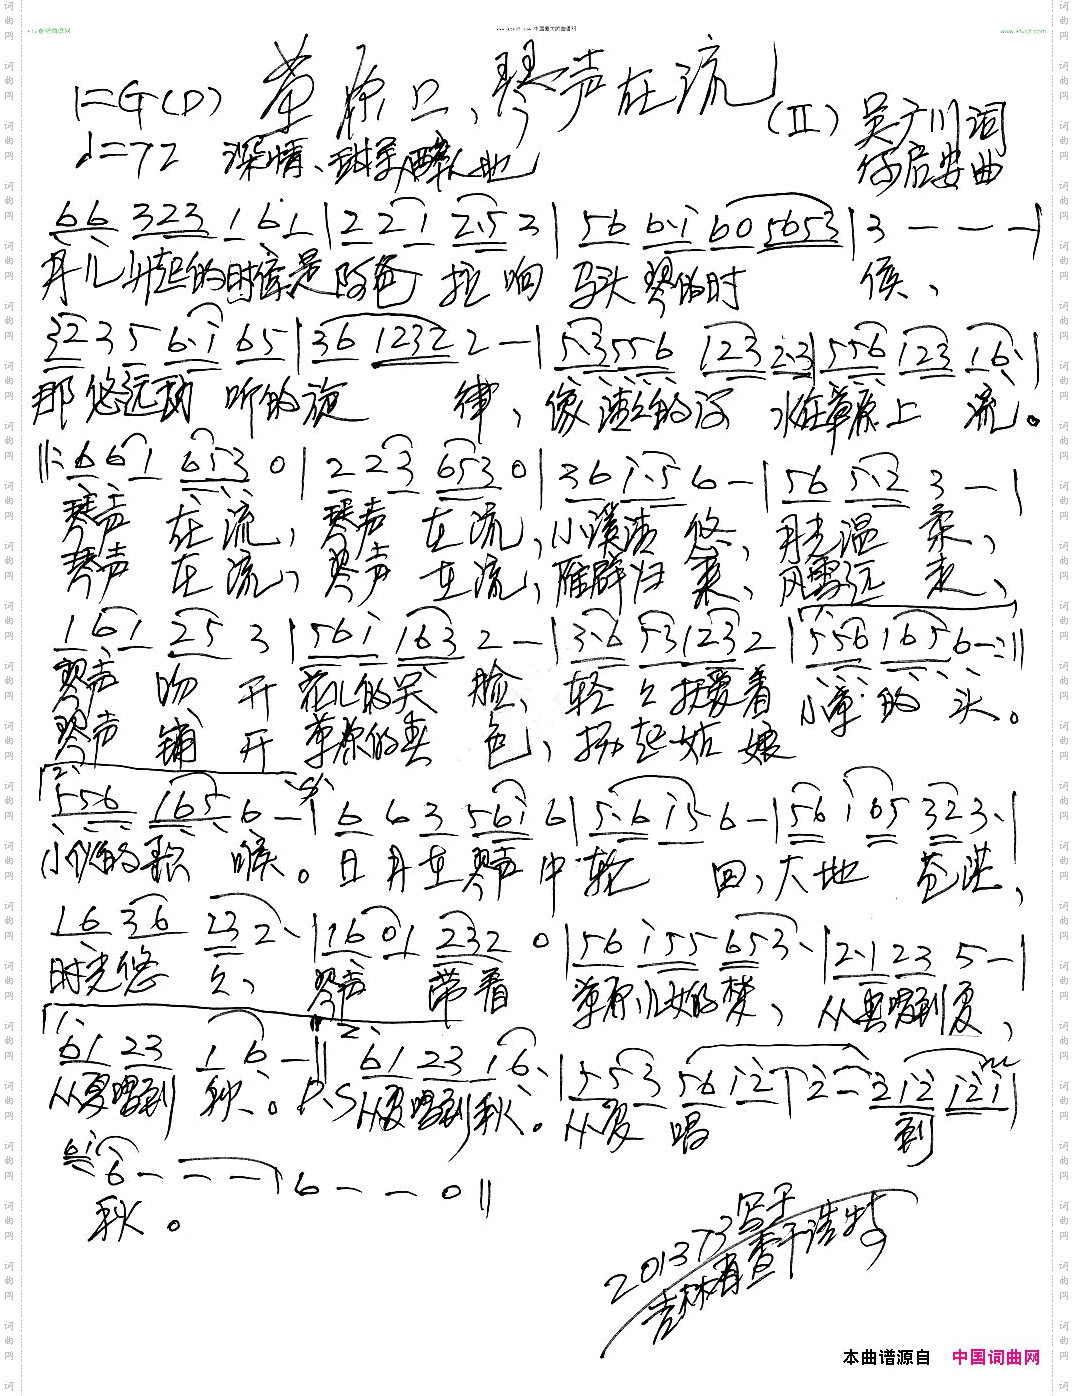 草原上，琴声在流
1=G(D)
♩=72 深情、甜美、醉人地
(II) 吴广川词
任启安曲
6 6 3 2 3 1 6 1 | 2 2 1 2·5 3 | 5 6 6·i 6 0 5 6 5 3 | 3 — — — |
月儿升起的时候是阿爸 拉响 马头琴的时 候，
3 2 3 5 6·i 6 5 | 3 6 1 2 3 2 2 — | 5·3 5 5 6 1 2 3 2·3 | 5 5 6 1 2 3 1 6· |
那悠远动 听的旋 律，像清清的河 水在草原上 流。
‖: 6 6 1 6 5 3 0 | 2 2 3 6 5 3 0 | 3 6 i·5 6 — | 5 6 5·2 3 — |
琴声 在流，琴声 在流，小溪清 悠，月光温 柔，
琴声 在流，琴声 在流，雁群归 来，风雪远 走，
1 6 1 2 5 3 | 5 6 i 1 6 3 2 — | 3·6 5 3 1 2 3 2 | 5 5 6 1 6 5 6 — :‖
琴声 吻 开 花儿的笑 脸，轻轻抚爱着 小草的 头。
琴声 铺 开 草原的春 色，扬起姑 娘
2、
5 5 6 1 6 5 6 — | 6 6 3 5 6 i 6 | 5·6 i 5 6 — | 5 6 i 6 5 3 2 3· |
小伙的歌 喉。日月在琴声中轮 回，大地 苍茫，
1 6 3 6 2 3 2· | 1 6 0 1 2 3 2 0 | 5 6 i 5 5 6 5 3· | 2·1 2 3 5 — |
时光悠 久，琴声 带着 草原儿女的梦，从春唱到夏，
1、 2、
6 1 2 3 1 6 — ‖ 6 1 2 3 1 6· | 5 5 3 5 6 i 2 | 2 — 2 i 2 i 2 i |
从夏唱到 秋。D.S 从夏唱到秋。从夏 唱 到
6 i 6 — — — | 6 — — 0 ‖
秋。
201373写于
吉林省查干浩特
本曲谱源自 中国词曲网